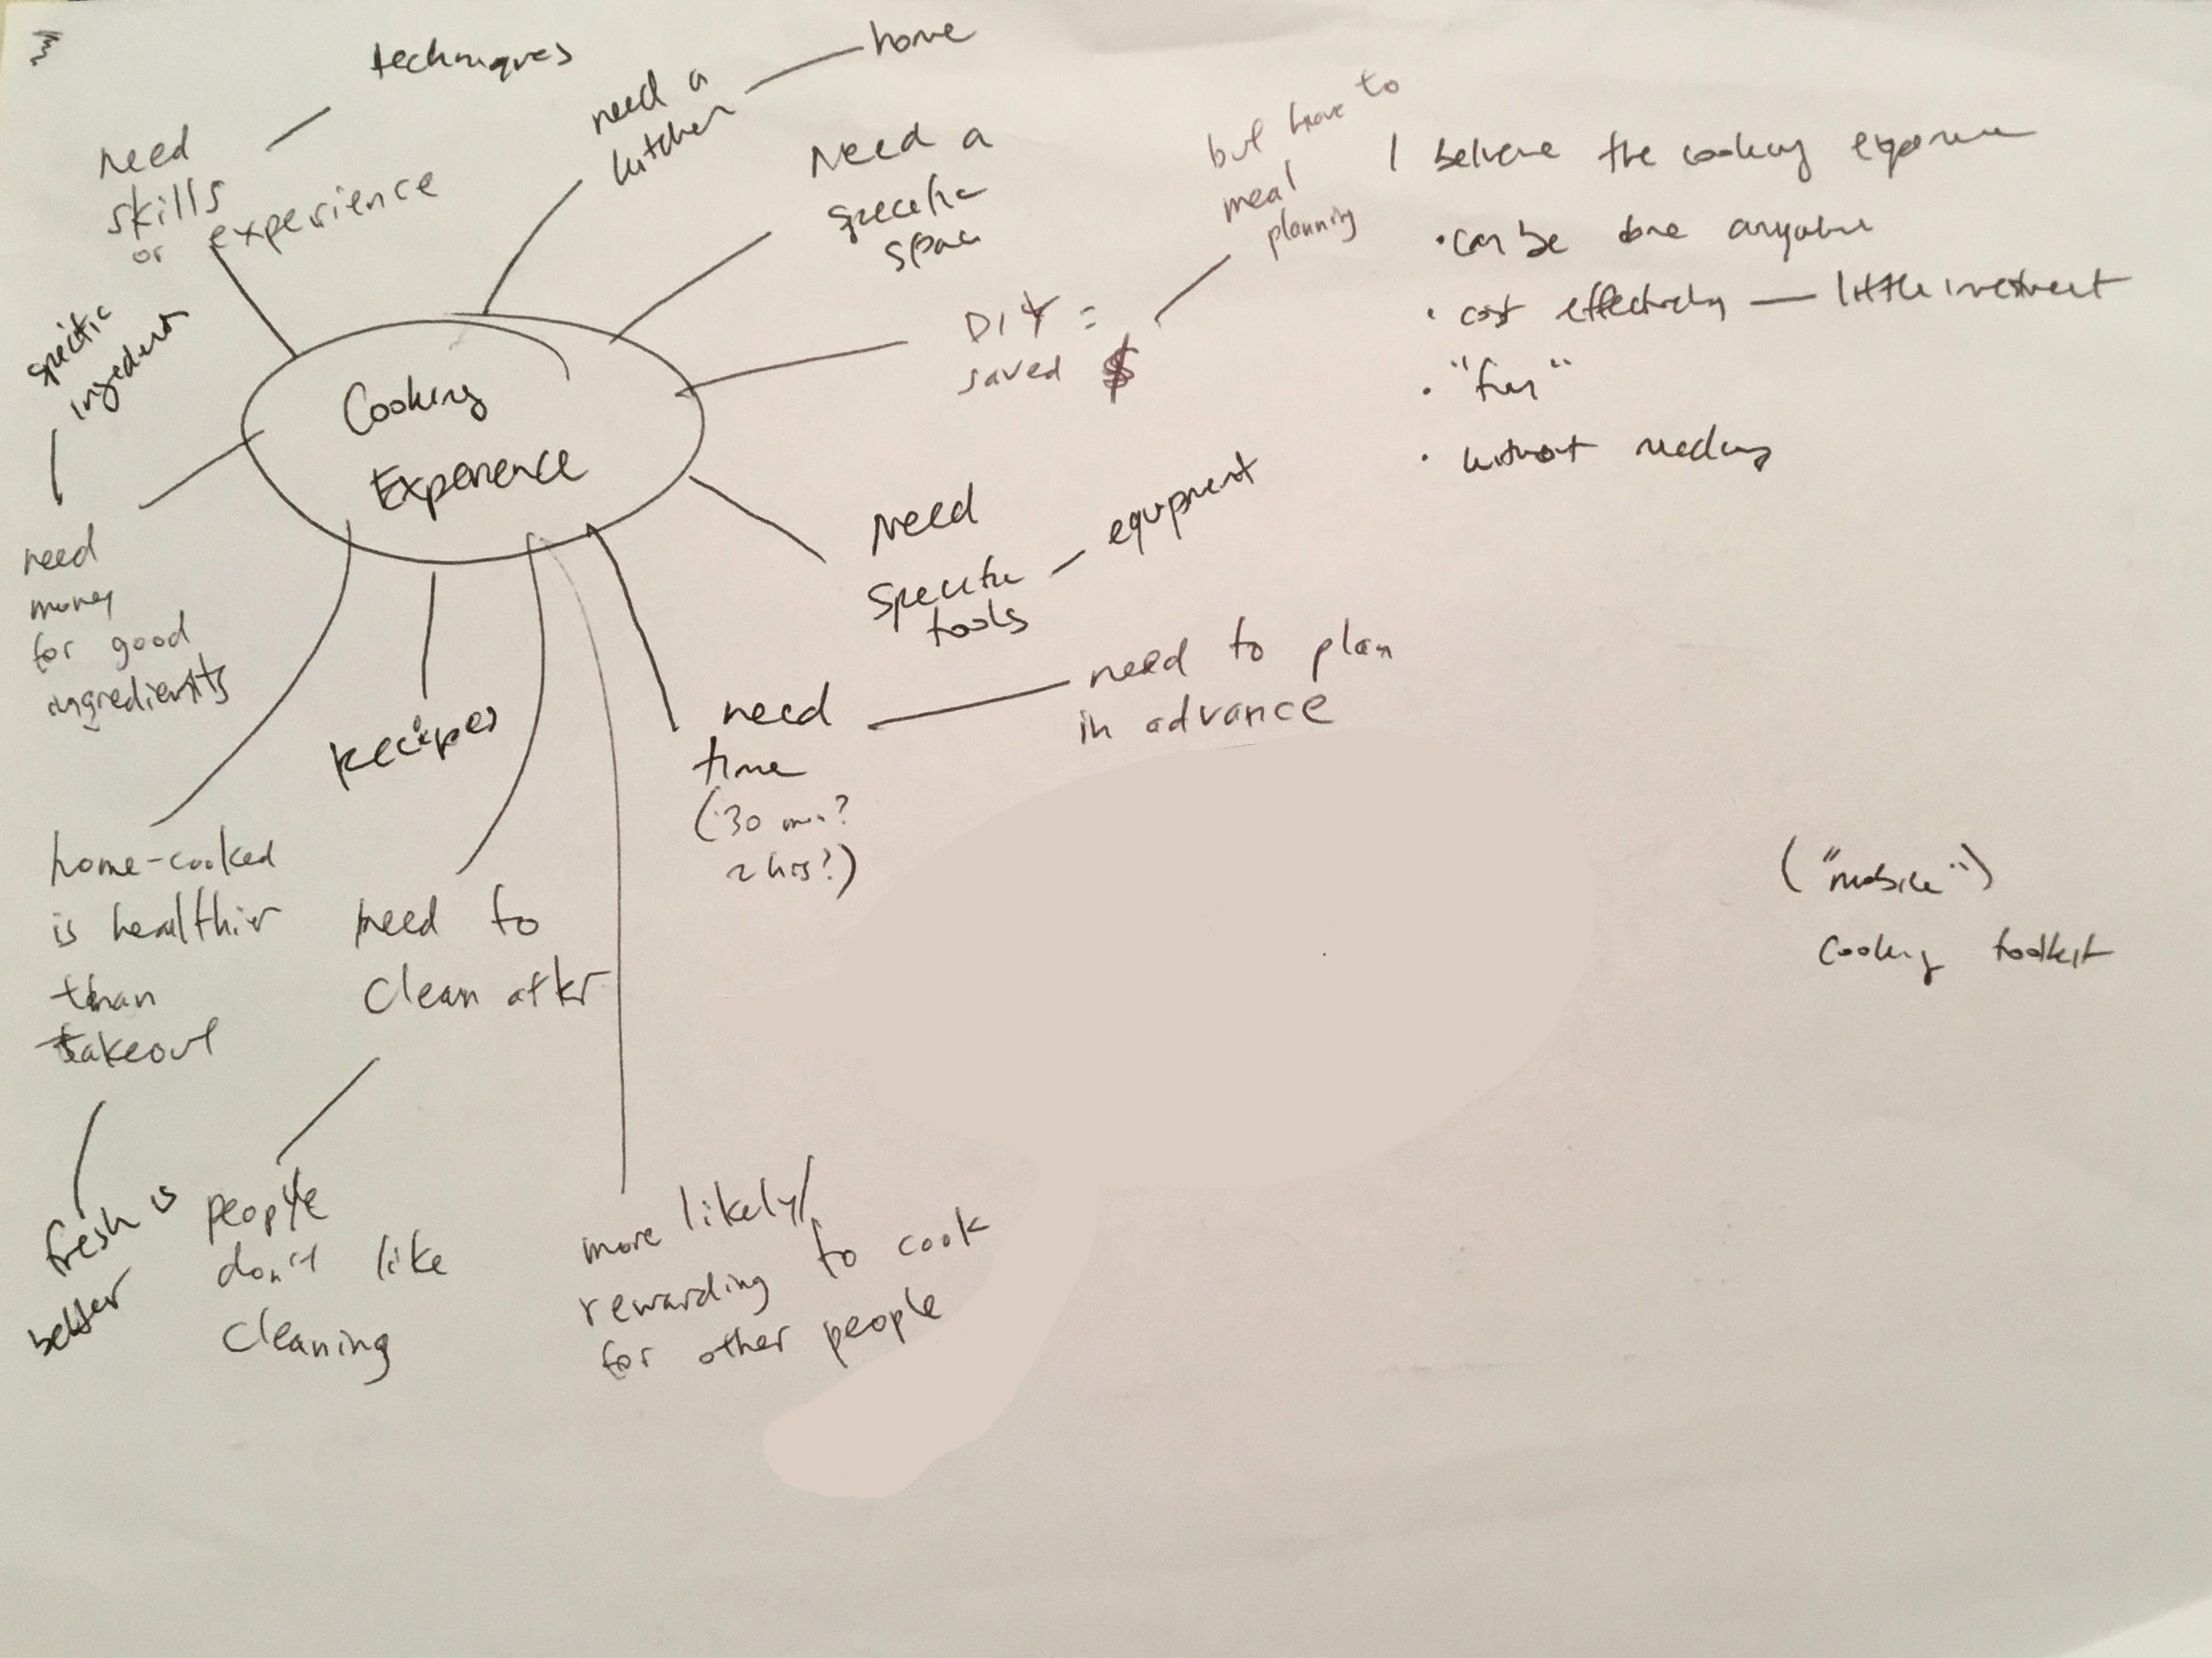 techniques
need
skills
or experience
need a
kitchen
home
Need a
specific
space
DIY =
saved $
but have to
meal
planning
I believe the cooking experience
• can be done anywhere
• cost effectively — little investment
• "fun"
• without needing
specific
ingredients
Cooking
Experience
need
money
for good
ingredients
Need
specific
tools
equipment
recipes
need
time
(30 min?
2 hrs?)
need to plan
in advance
home-cooked
is healthier
than
takeout
need to
clean after
("mobile")
cooking toolkit
fresh is
better
people
don't like
cleaning
more likely/
rewarding to cook
for other people